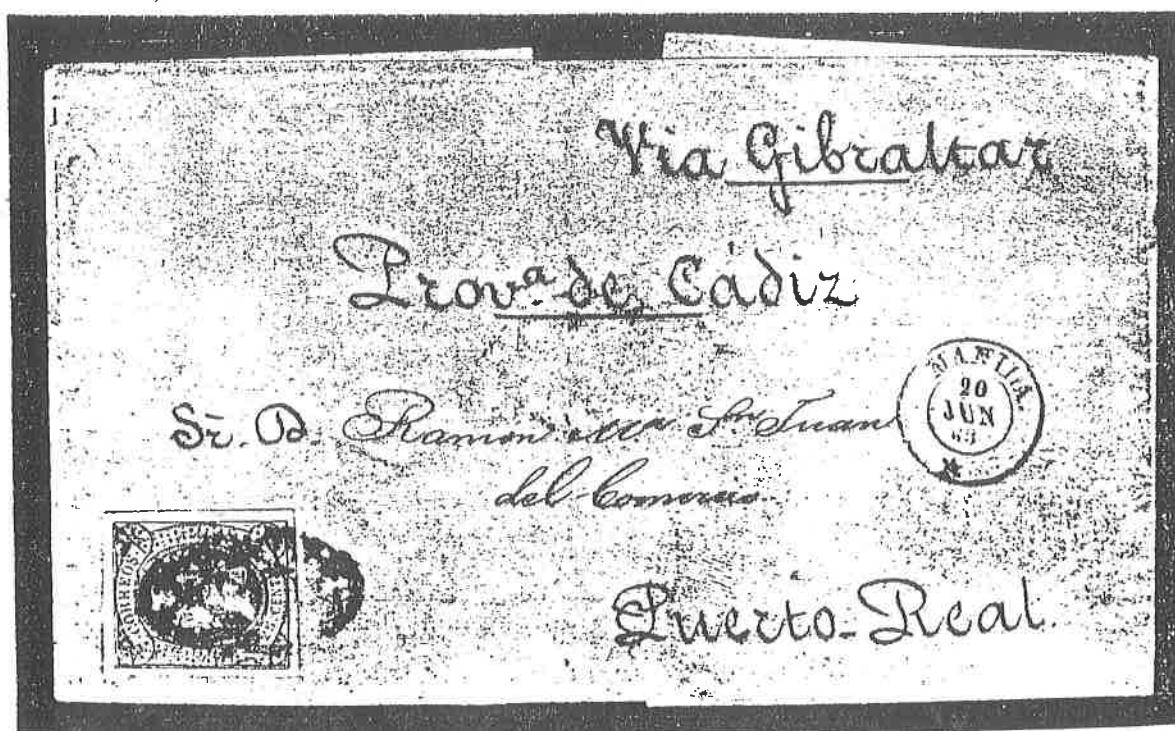 Via Gibraltar
Prov.ª de Cádiz
MANILA
20
JUN
63
Sr. D. Ramon Mª Sn Juan
del Comercio
CORREOS
Puerto-Real.